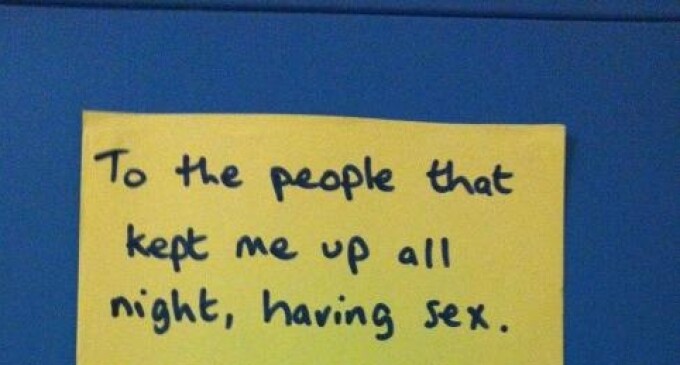 To the people that
kept me up all
night, having sex.